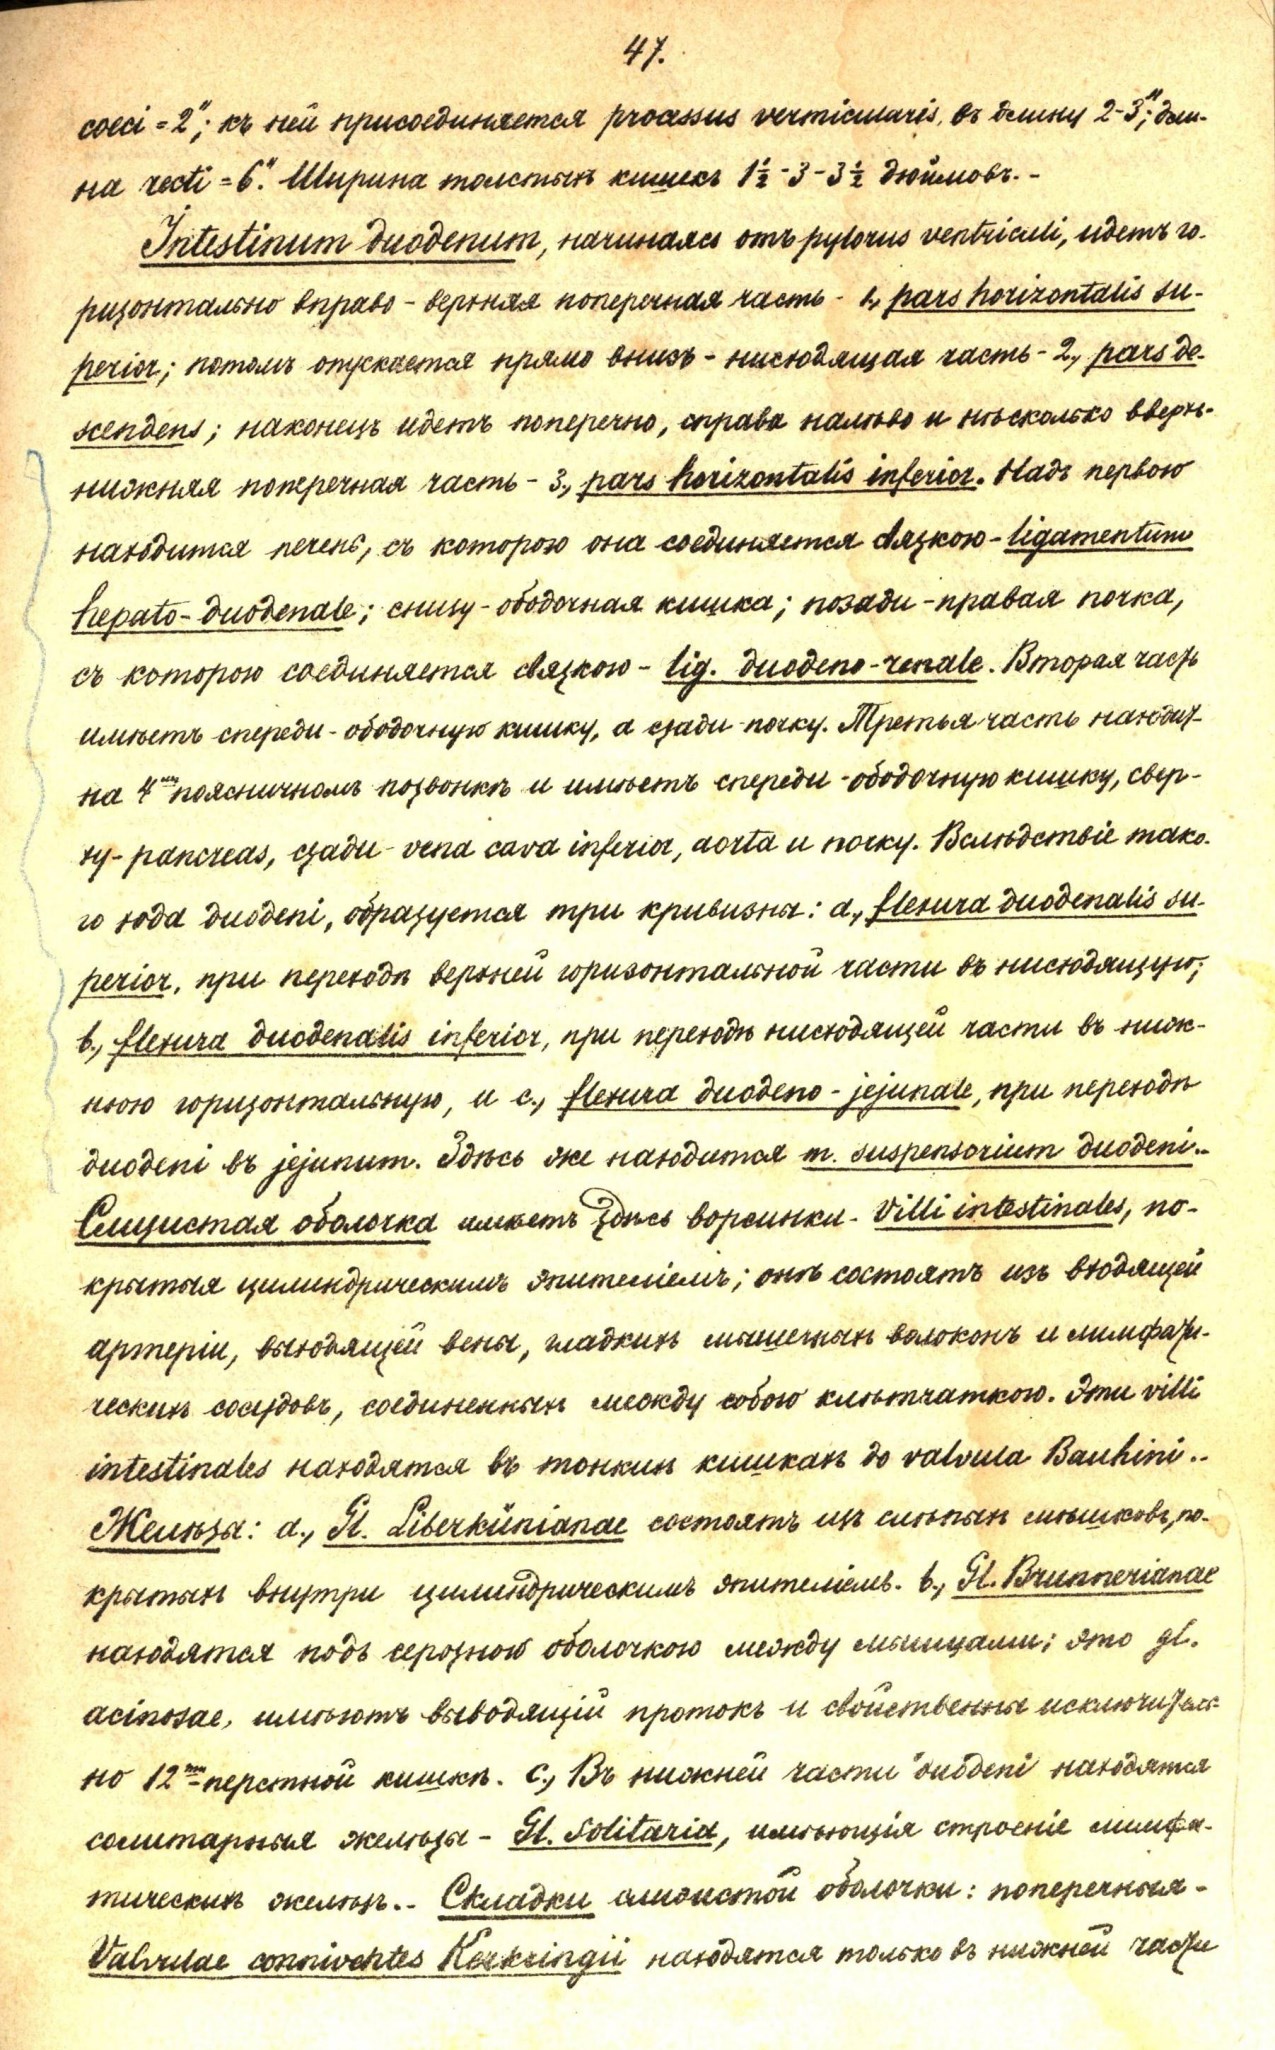 47.
coeci = 2"; къ ней присоединяется processus vermicularis, въ длину 2-3"; дли-
на recti = 6". Ширина толстыхъ кишекъ 1½ - 3 - 3½ дюймовъ. -
Intestinum duodenum, начинаясь отъ pylorus ventriculi, идетъ го-
ризонтально вправо - верхняя поперечная часть - 1., pars horizontalis su-
perior; потомъ опускается прямо внизъ - нисходящая часть - 2., pars de-
scendens; наконецъ идетъ поперечно, справа налѣво и нѣсколько вверхъ-
нижняя поперечная часть - 3., pars horizontalis inferior. Надъ первою
находится печень, съ которою она соединяется связкою - ligamentum
hepato-duodenale; снизу - ободочная кишка; позади - правая почка,
съ которою соединяется связкою - lig. duodeno-renale. Вторая часть
имѣетъ спереди - ободочную кишку, а сзади - почку. Третья часть находит-
на 4мъ поясничномъ позвонкѣ и имѣетъ спереди - ободочную кишку, свер-
ху - pancreas, сзади - vena cava inferior, aorta и почку. Вслѣдствіе тако-
го хода duodeni, образуется три кривизны: a., flexura duodenalis su-
perior, при переходѣ верхней горизонтальной части въ нисходящую;
b., flexura duodenalis inferior, при переходѣ нисходящей части въ ниж-
нюю горизонтальную, и c., flexura duodeno-jejunale, при переходѣ
duodeni въ jejunum. Здѣсь же находится m. suspensorium duodeni..
Слизистая оболочка имѣетъ здѣсь ворсинки - Villi intestinales, по-
крытыя цилиндрическимъ эпителіемъ; онѣ состоятъ изъ входящей
артеріи, выходящей вены, гладкихъ мышечныхъ волоконъ и лимфати-
ческихъ сосудовъ, соединенныхъ между собою клѣтчаткою. Эти villi
intestinales находятся въ тонкихъ кишкахъ до valvula Bauhini..
Железы: a., Gl. Liberkünianae состоятъ изъ слѣпыхъ мѣшковъ, по-
крытыхъ внутри цилиндрическимъ эпителіемъ. b., Gl. Brunnerianae
находятся подъ серозною оболочкою между мышцами; это gl.
acinosae, имѣютъ выводящій протокъ и свойственны исключитель-
но 12ти-перстной кишкѣ. c., Въ нижней части duodeni находятся
солитарныя железы - Gl. Solitaria, имѣющія строеніе лимфа-
тическихъ железъ.. Складки слизистой оболочки: поперечныя -
Valvulae conniventes Kerkringii находятся только въ нижней части